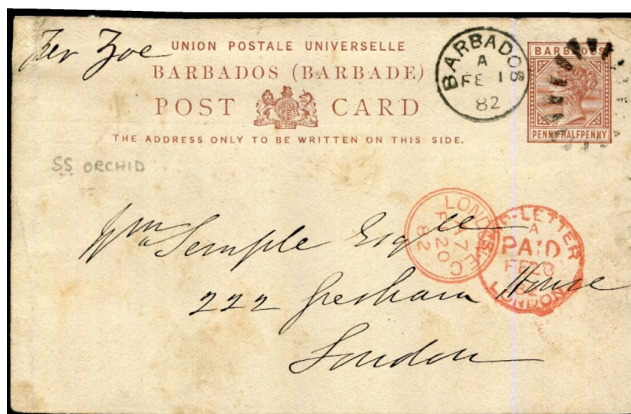 Per Zoe
UNION POSTALE UNIVERSELLE
BARBADOS (BARBADE)
POST CARD
THE ADDRESS ONLY TO BE WRITTEN ON THIS SIDE.
BARBADOS
A
FE 1
82
BARBADOS
PENNY HALFPENNY
SS ORCHID
Wm Semple Esqre
222 Gresham House
London
LONDON E.C
7
FE 20
82
LETTER
A
PAID
LONDON